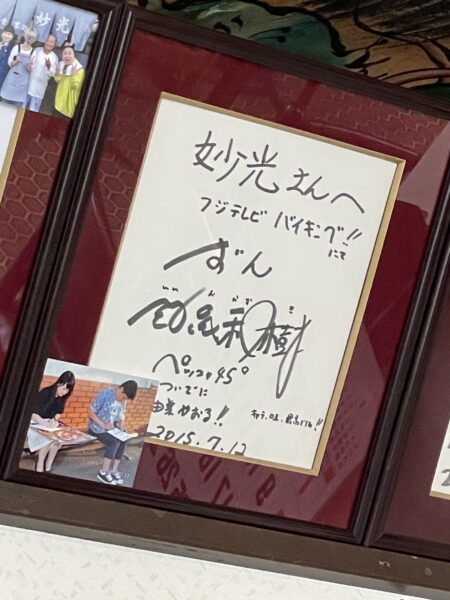 妙光
妙光さんへ
フジテレビ バイキング!!
にて
ずん
飯尾和樹
ペッコリ45°
ついでに
由美かおる!!
2015.7.12